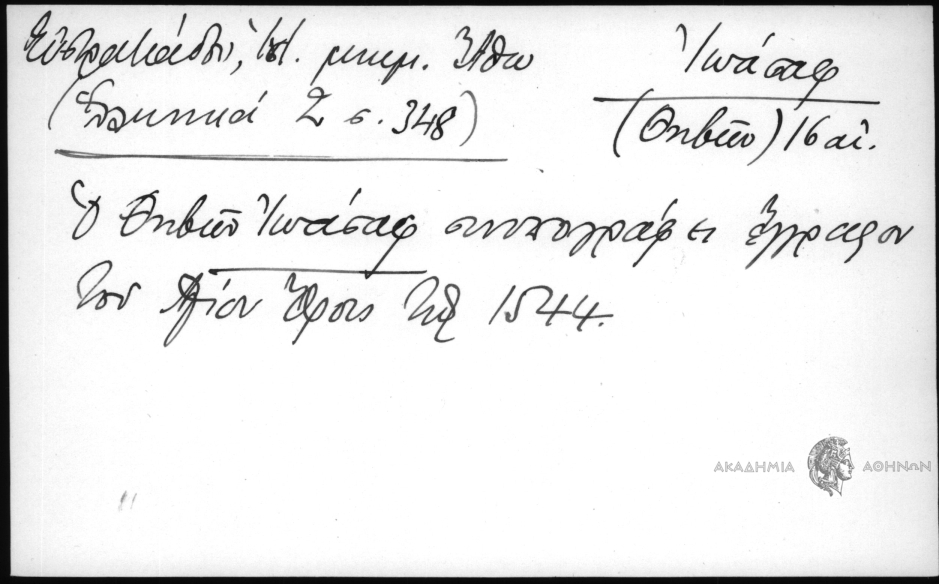 Εὐστρατιάδου, Ἱστ. μνημ. Ἄθω
(Ἑλληνικά 2 σ. 348)
Ἰωάσαφ
(Θηβῶν) 16 αἰ.
Ὁ Θηβῶν Ἰωάσαφ συνυπογράφει ἔγγραφον
τοῦ Ἁγίου Ὄρους τῷ 1544.
ΑΚΑΔΗΜΙΑ ΑΘΗΝΩΝ